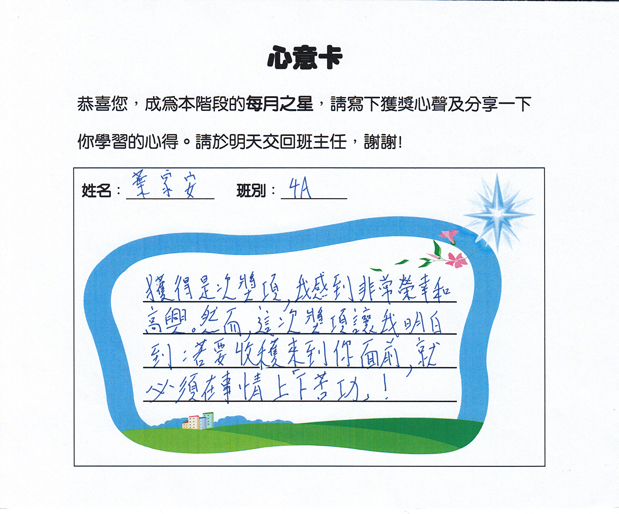 心意卡
恭喜您，成為本階段的每月之星，請寫下獲獎心聲及分享一下
你學習的心得。請於明天交回班主任，謝謝!
姓名：葉家安 班別：4A
獲得是次獎項，我感到非常榮幸和
高興。然而，這次獎項讓我明白
到：若要收穫來到你面前，就
必須在事情上下苦功。！